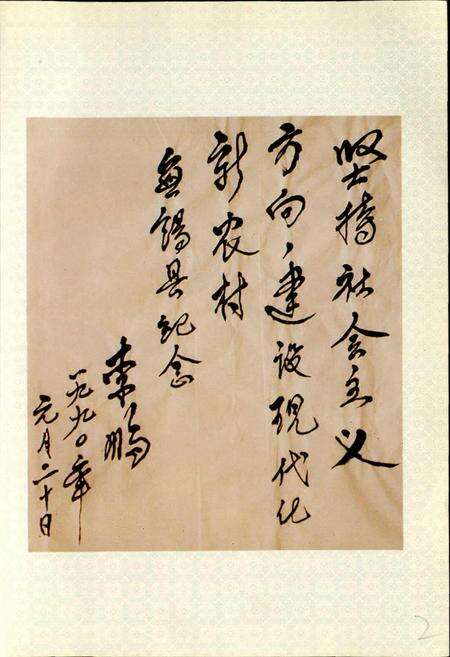 坚持社会主义
方向，建设现代化
新农村
無锡县纪念
李鹏
一九九〇年
元月二十日
2